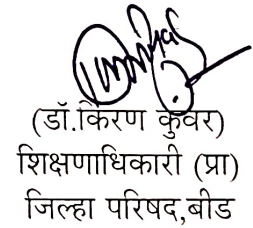 (डॉ.किरण कुंवर)
शिक्षणाधिकारी (प्रा)
जिल्हा परिषद,बीड